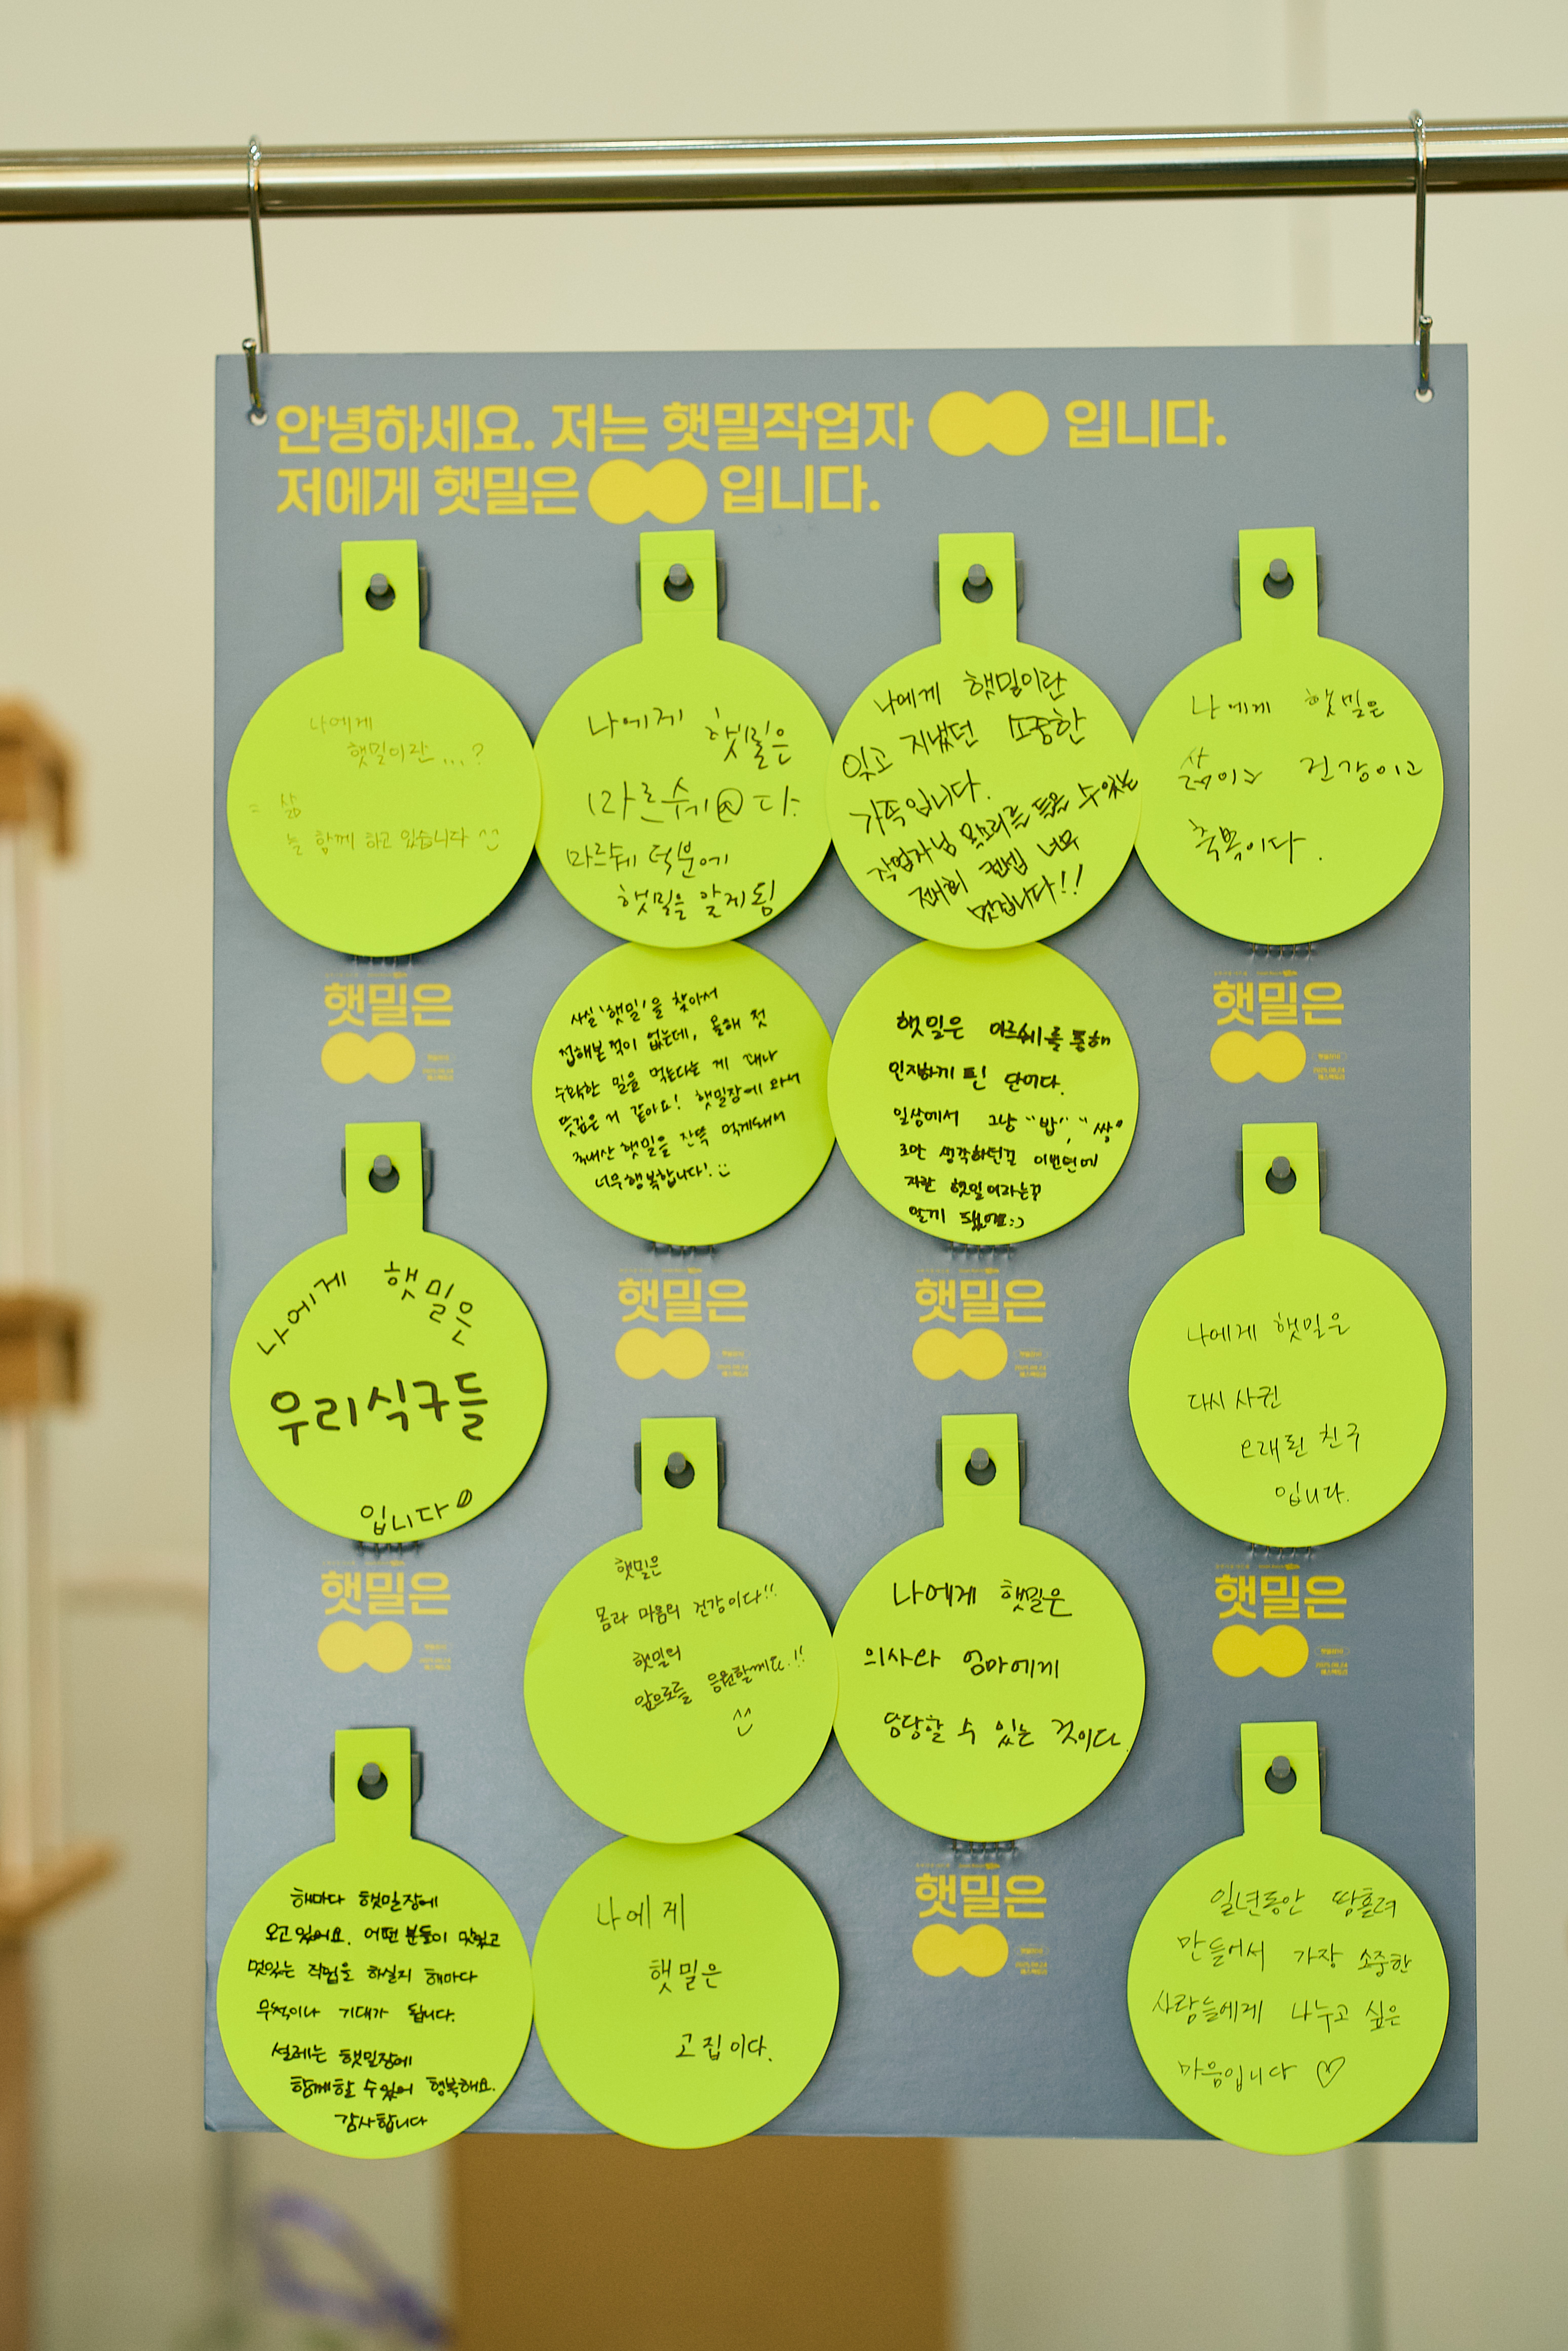 안녕하세요. 저는 햇밀작업자 입니다.
저에게 햇밀은 입니다.
나에게
햇밀이란...?
= 삶
늘 함께 하고 있습니다
나에게 햇밀은
마르쉐@다.
마르쉐 덕분에
햇밀을 알게됨
나에게 햇밀이란
잊고 지냈던 소중한
가족입니다.
작업자님 목소리를 들을 수 있는
전시회 컨셉 너무
멋집니다!!
나에게 햇밀은
건강이고
축복이다.
사실 '햇밀'을 찾아서
접해본 적이 없는데, 올해 첫
수확한 밀을 먹는다는 게 꽤나
뜻깊은 거 같아요! 햇밀장에 와서
국내산 햇밀을 잔뜩 먹게돼서
너무 행복합니다! :)
햇밀은 마르쉐를 통해
인지하게 된 단어다.
일상에서 그냥 "밥", "쌀"
로만 생각하던걸 이번년에
자란 햇밀이라는걸
알게 됐어요:)
햇밀은
햇밀은
나에게 햇밀은
우리식구들
입니다
나에게 햇밀은
다시 사귄
오래된 친구
입니다.
햇밀은
햇밀은
햇밀은
몸과 마음의 건강이다!!
햇밀의
앞으로를 응원할께요.!!
나에게 햇밀은
의사와 엄마에게
당당할 수 있는 것이다.
햇밀은
햇밀은
해마다 햇밀장에
오고있어요. 어떤 분들이 맛있고
멋있는 작업을 하실지 해마다
무척이나 기대가 됩니다.
설레는 햇밀장에
함께할 수 있어 행복해요.
감사합니다
나에게
햇밀은
고집이다.
햇밀은
일년동안 땀흘려
만들어서 가장 소중한
사람들에게 나누고 싶은
마음입니다 ♡